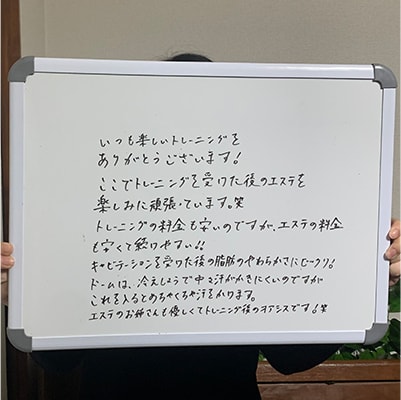 いつも楽しいトレーニングを
ありがとうございます!
ここでトレーニングを受けた後のエステを
楽しみに頑張ています。笑
トレーニングの料金も安いのですが、エステの料金
も安くて
キャビテーションを受けた後の脂肪のやわらかさにビックリ!
ドームは、冷えしょうで中々汗がかきにくいのですが
これを入るとめちゃくちゃ汗をかります。
エステのお姉さんも優しくてトレーニング後のオアシスです!笑